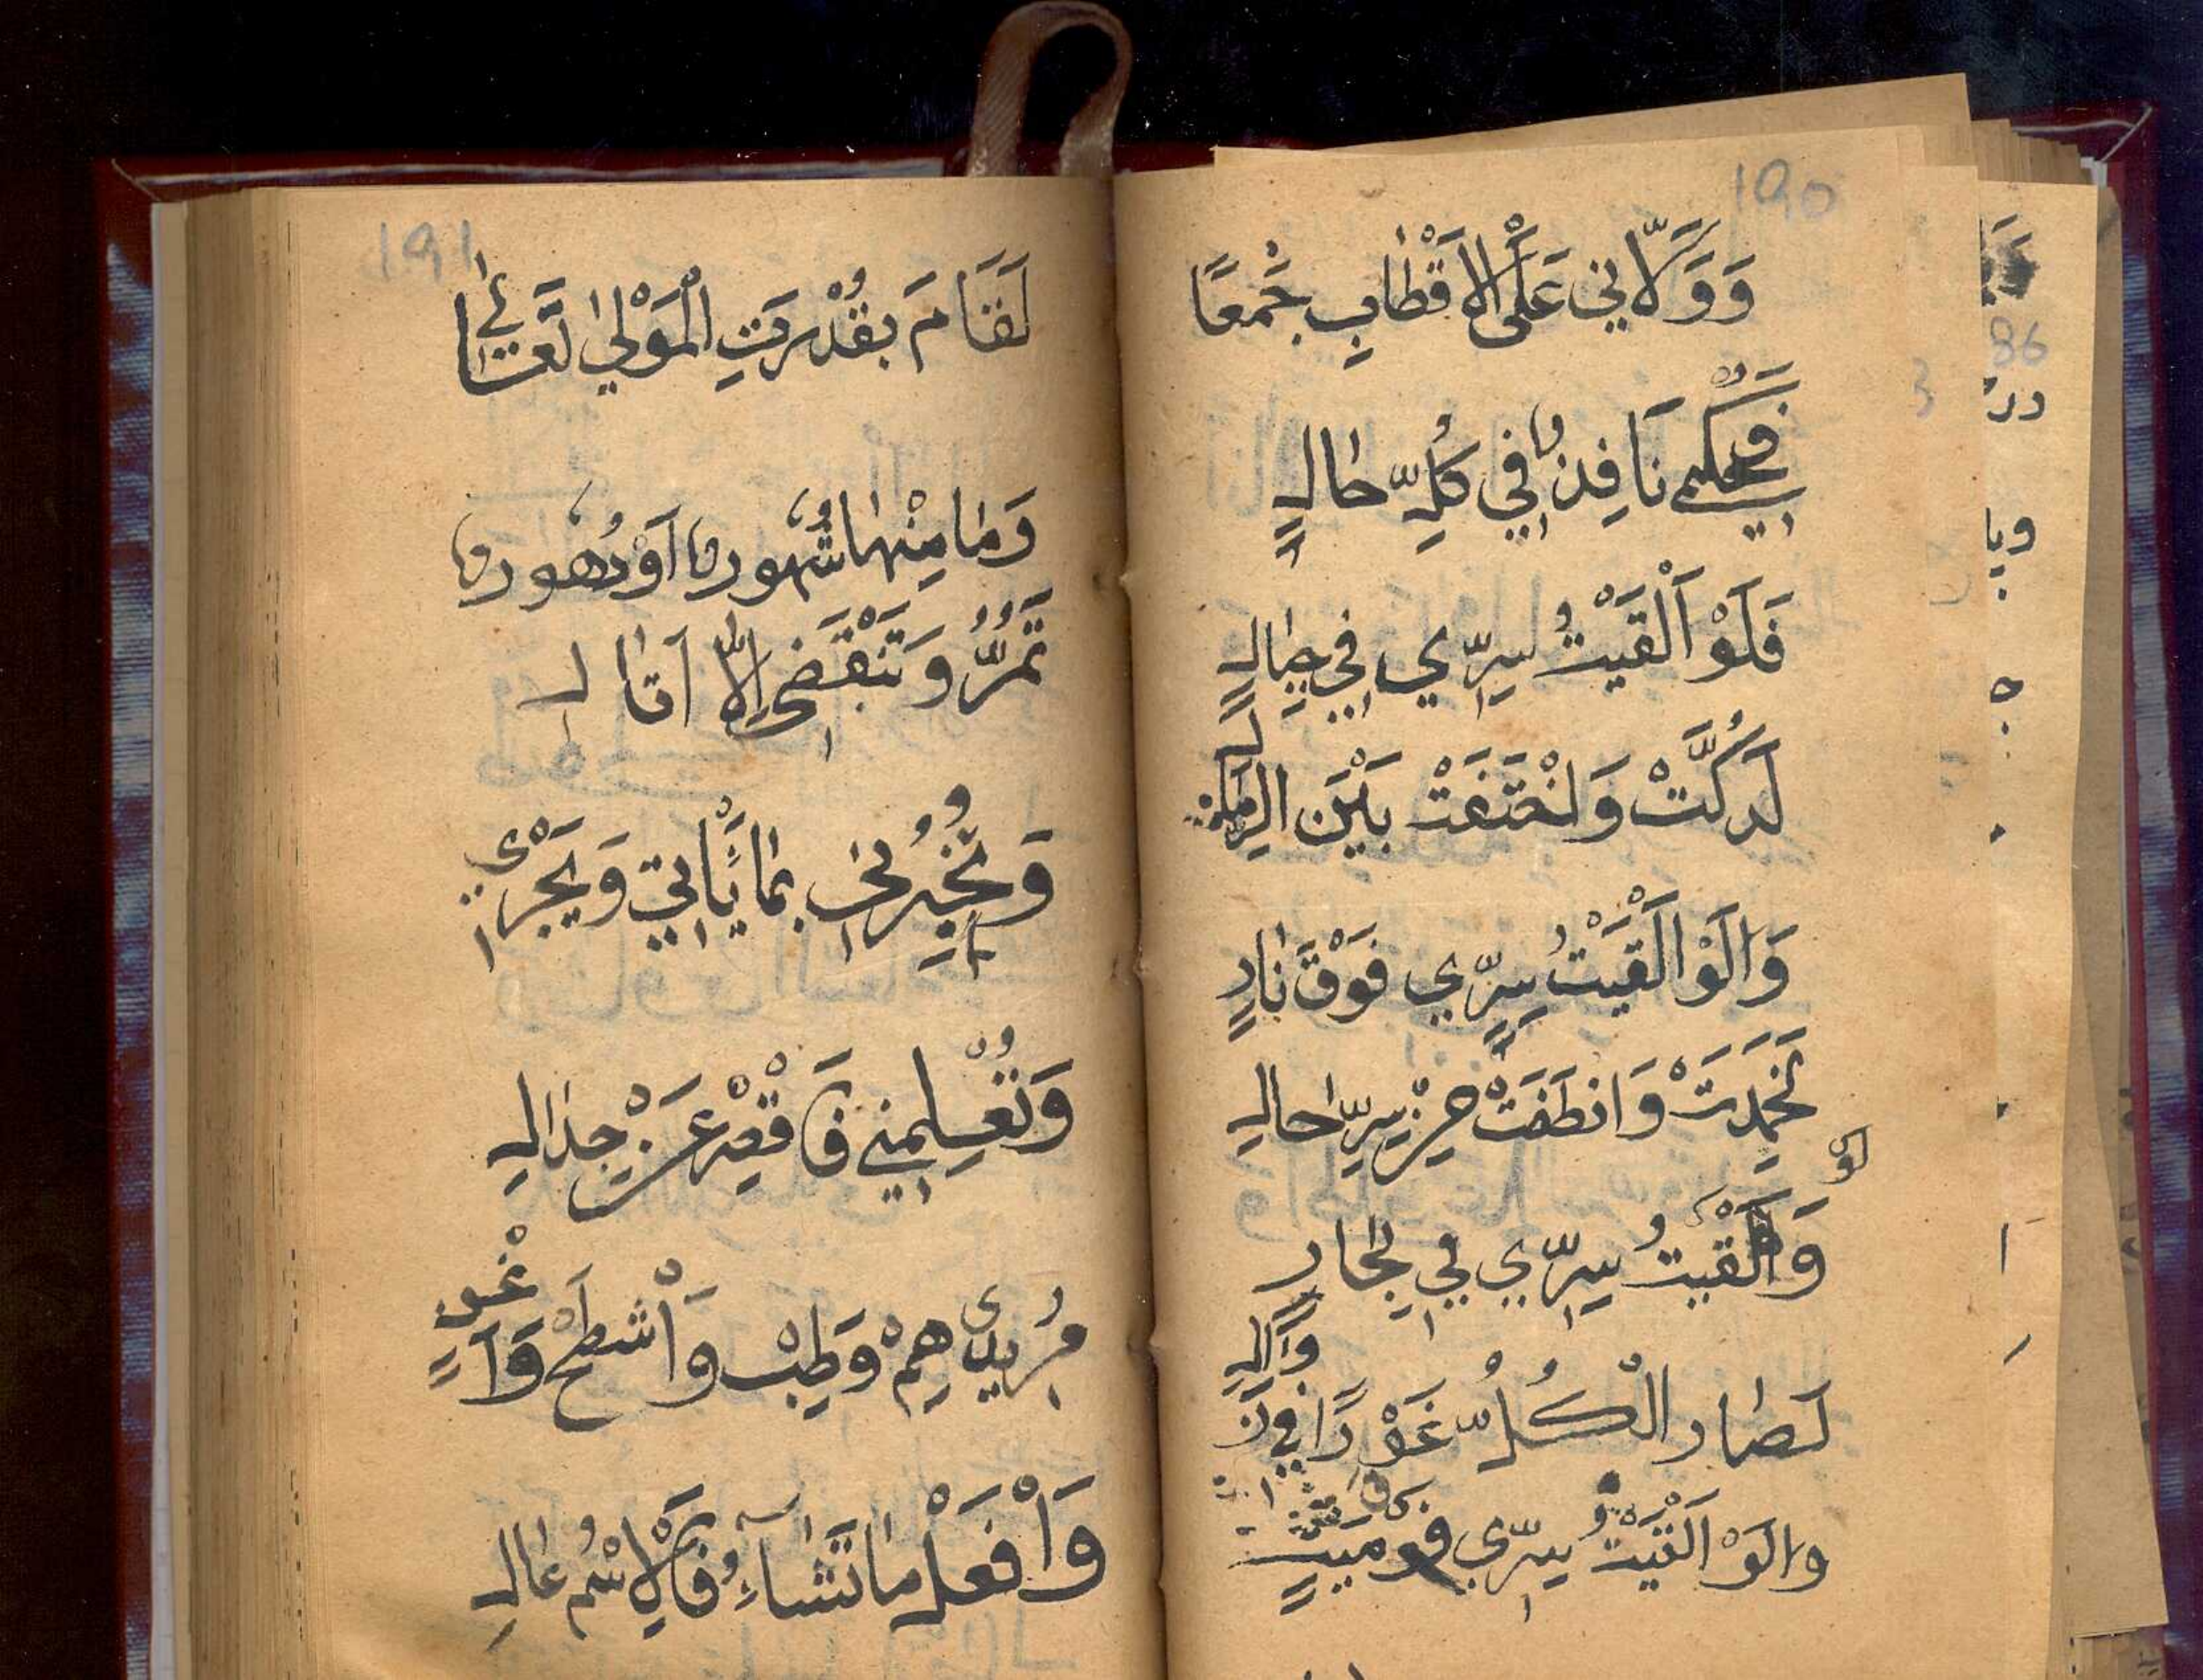 190
وَوَلَّانِي عَلَى الْاَقْطَابِ جَمْعًا
فَحُكْمِي نَافِذٌ فِي كُلِّ حَالٍ
فَلَوْ اَلْقَيْتُ سِرِّي فِي جِبَالٍ
لَدُكَّتْ وَاخْتَفَتْ بَيْنَ الرِّمَالِ
وَالَوْ اَلْقَيْتُ سِرِّي فَوْقَ نَارٍ
لَخَمِدَتْ وَانْطَفَتْ مِنْ سِرِّ حَالِ
وَلَوْ اَلْقَيْتُ سِرِّي فِي بِحَارٍ
لَصَارَ الْكُلُّ غَوْرًا فِي زَوَالِ
وَالَوْ اَلْقَيْتُ سِرِّي فَوْقَ مَيِّتٍ
191
لَقَامَ بِقُدْرَتِ الْمَوْلٰى تَعَالٰى
وَمَا مِنْهَا شُهُورٌ اَوْ دُهُورٌ
تَمُرُّ وَتَنْقَضِى اِلَّا اَتَالِ
وَتُخْبِرُنِى بِمَا يَأْتِي وَيَجْرِى
وَتُعْلِمُنِي فَاقْصِرْ عَنْ جِدَالِ
مُرِيدِى هِمْ وَطِبْ وَاشْطَحْ وَغَنِّ
وَافْعَلْ مَا تَشَاءُ فَالْاِسْمُ عَالِ
86